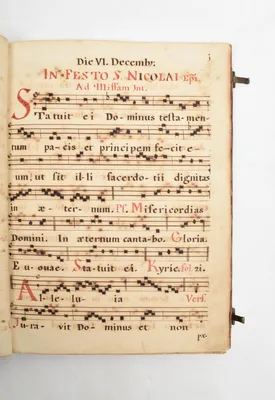 1
Die VI. Decembr.
IN FESTO S. NICOLAI epī.
Ad Missam Int.
Statuit ei Dominus testamen-
tum pacis et principem fecit e-
um: ut sit illi sacerdotii dignitas
in æternum. Ps. Misericordias
Domini. In æternum cantabo. Gloria.
Euouae. Statuit ei. Kyrie. fol. 21.
Alleluia Vers.
Juravit Dominus et non
pœ-